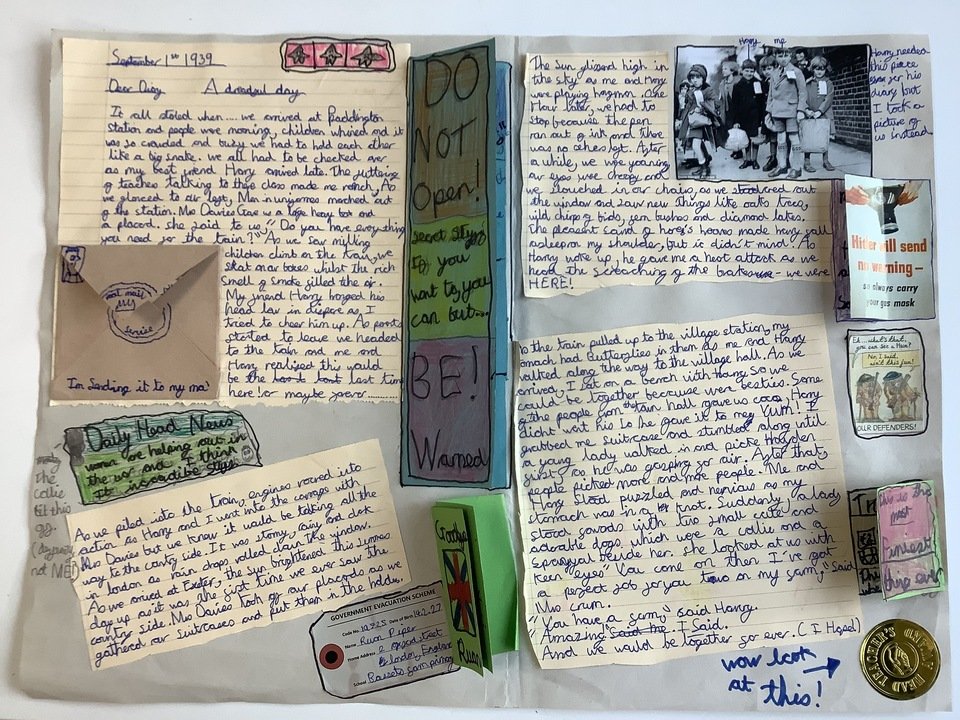 September 1st 1939
Dear Diary A dreadful day
It all started when.... we arrived at Paddington
station and people were moaning, children whined and it
was so crowded and busy we had to hold each other
like a big snake. we all had to be checked over
as my best friend Harry arrived late. The
of teachers talking to there class made me As
we glanced to our left, Men in uniforms marched out
of the station. Mrs Davies Gave us a large heavy box and
a placord. she said to us "Do you have everything
you need for the train?" As we saw
children climb on the train, we
skat our boxes whilst the rich
smell of smoke filled the air.
My friend Harry his
head low in dispare as I
tried to cheer him up. As
started to leave we headed
to the train and me and
Harry realised this would
be the last time
here! or maybe forever
most mail
service
I'm Sending it to my ma!
Daily Head News
women are helping out in
the war and I think
It is
As we piled into the train, engines roared into
action as Harry and I went into the with
Mrs Davies but we knew it would be talking all the
way to the contry side. It was stormy, rainy and dark
in london as rain drops rolled down the window.
As we arived at Exeter, the sun brightened this summer
day up as it was the first time we ever saw the
country side. Mrs Davies took of our placords as we
gathered our suitcases and put them in the holder.
The
collie
til this
not
GOVERNMENT EVACUATION SCHEME
Code No. Date of Birth 19.2.27
Name Ruan Piper
Home Address 2 street
london, England
School
DO
NOT
Open!
secret
to you
want to you
can but....
BE!
Warned
Ruan
The Sun glissend high in
the sky as me and Harry
were playing hangman. One
Hour later, we had to
stop because the pen
ran out of ink and there
was no others left. After
a while, we were yawning
our eyes were and
we slouched in our chairs, as we stared out
the window and saw new things like oaks trees,
wild chirps of birds, bushes and diamond lakes.
The pleasent sound of hooves made Harry fall
asleep on my shoulder, but it didn't mind. As
Harry woke up, he gave me a heart attack as we
heard the screaching of the - we were
HERE!
Harry me
Harry needed
this piece
for his
diary but
I took a
picture of
us instead
Hitler will send
no warning—
so always carry
your gas mask
the train pulled up to the village station, my
had Butterflies in them as me and Harry
walked along the way to the village hall. As we
arrived, I sat on a bench with Harry so we
could be together because were besties. Some
of the people from the town hall gave us coco, Harry
didnt want his so he gave it to me, Yum! I
grabbed me suitcase and stumbled along until
a young lady walked in and picke Hayden
first, so he was gasping for air. After that,
people picked more and more people. Me and
Harry stood puzzled and nervious as my
stomach was in a knot. Suddenly, a lady
stood with two small cute and
adorable dogs which were a collie and a
beside her. she looked at us with
keen "eyes" You come on then I've got
a perfect job for you two on my farm," said
Mrs crum.
"You have a farm," said Harry.
"Amazing" I Said.
And we would be together for ever. (I Hoped)
Eh... what's that,
you can see a Hun?
No, I said,
ain't this fun!
OUR DEFENDERS!
this is the
most
thing ever
now look
at this!
HEAD TEACHER'S AWARD